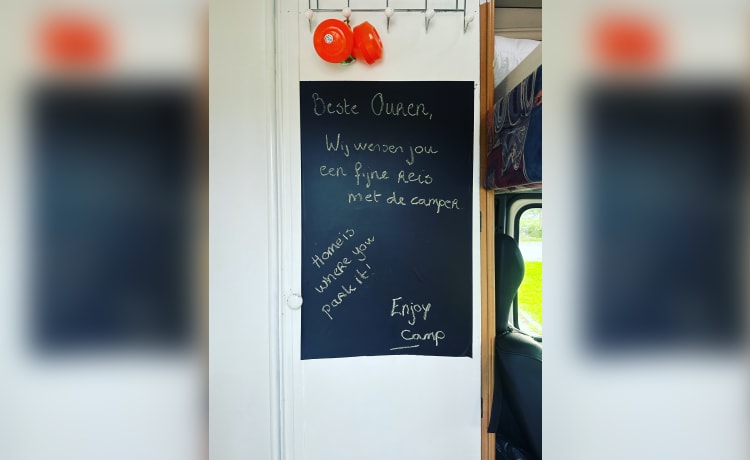 Beste Ouren,
Wij wensen jou
een fijne reis
met de camper
Home is
where you
park it!
Enjoy
Camp